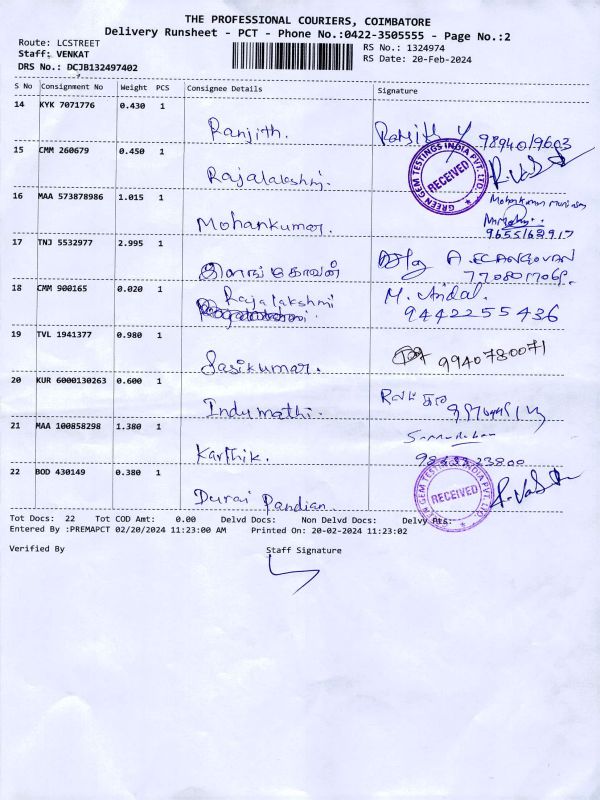 THE PROFESSIONAL COURIERS, COIMBATORE
Delivery Runsheet - PCT - Phone No.:0422-3505555 - Page No.:2
Route: LCSTREET
Staff: VENKAT
DRS No.: DCJB132497402
RS No.: 1324974
RS Date: 20-Feb-2024
S No Consignment No Weight PCS Consignee Details Signature
14 KYK 7071776 0.430 1
Ranjith. Ranjith
15 CMM 260679 0.450 1
GREEN GEM TESTINGS INDIA PVT. LTD.
RECEIVED
Rajalakshmi.
16 MAA 573878986 1.015 1
Mohankumar.
17 TNJ 5532977 2.995 1
இளங்கோவன் A. ELANGOVAN
18 CMM 900165 0.020 1
Rajalakshmi M. Andal.
9442255436
19 TVL 1941377 0.980 1
Sasikumar. 9940780071
20 KUR 6000130263 0.600 1
Indumathi.
21 MAA 100858298 1.380 1
Karthik.
22 BOD 430149 0.380 1
GREEN GEM TESTINGS INDIA PVT. LTD.
RECEIVED
Durai Pandian
Tot Docs: 22 Tot COD Amt: 0.00 Delvd Docs: Non Delvd Docs: Delvy Pts:
Entered By :PREMAPCT 02/20/2024 11:23:00 AM Printed On: 20-02-2024 11:23:02
Verified By Staff Signature